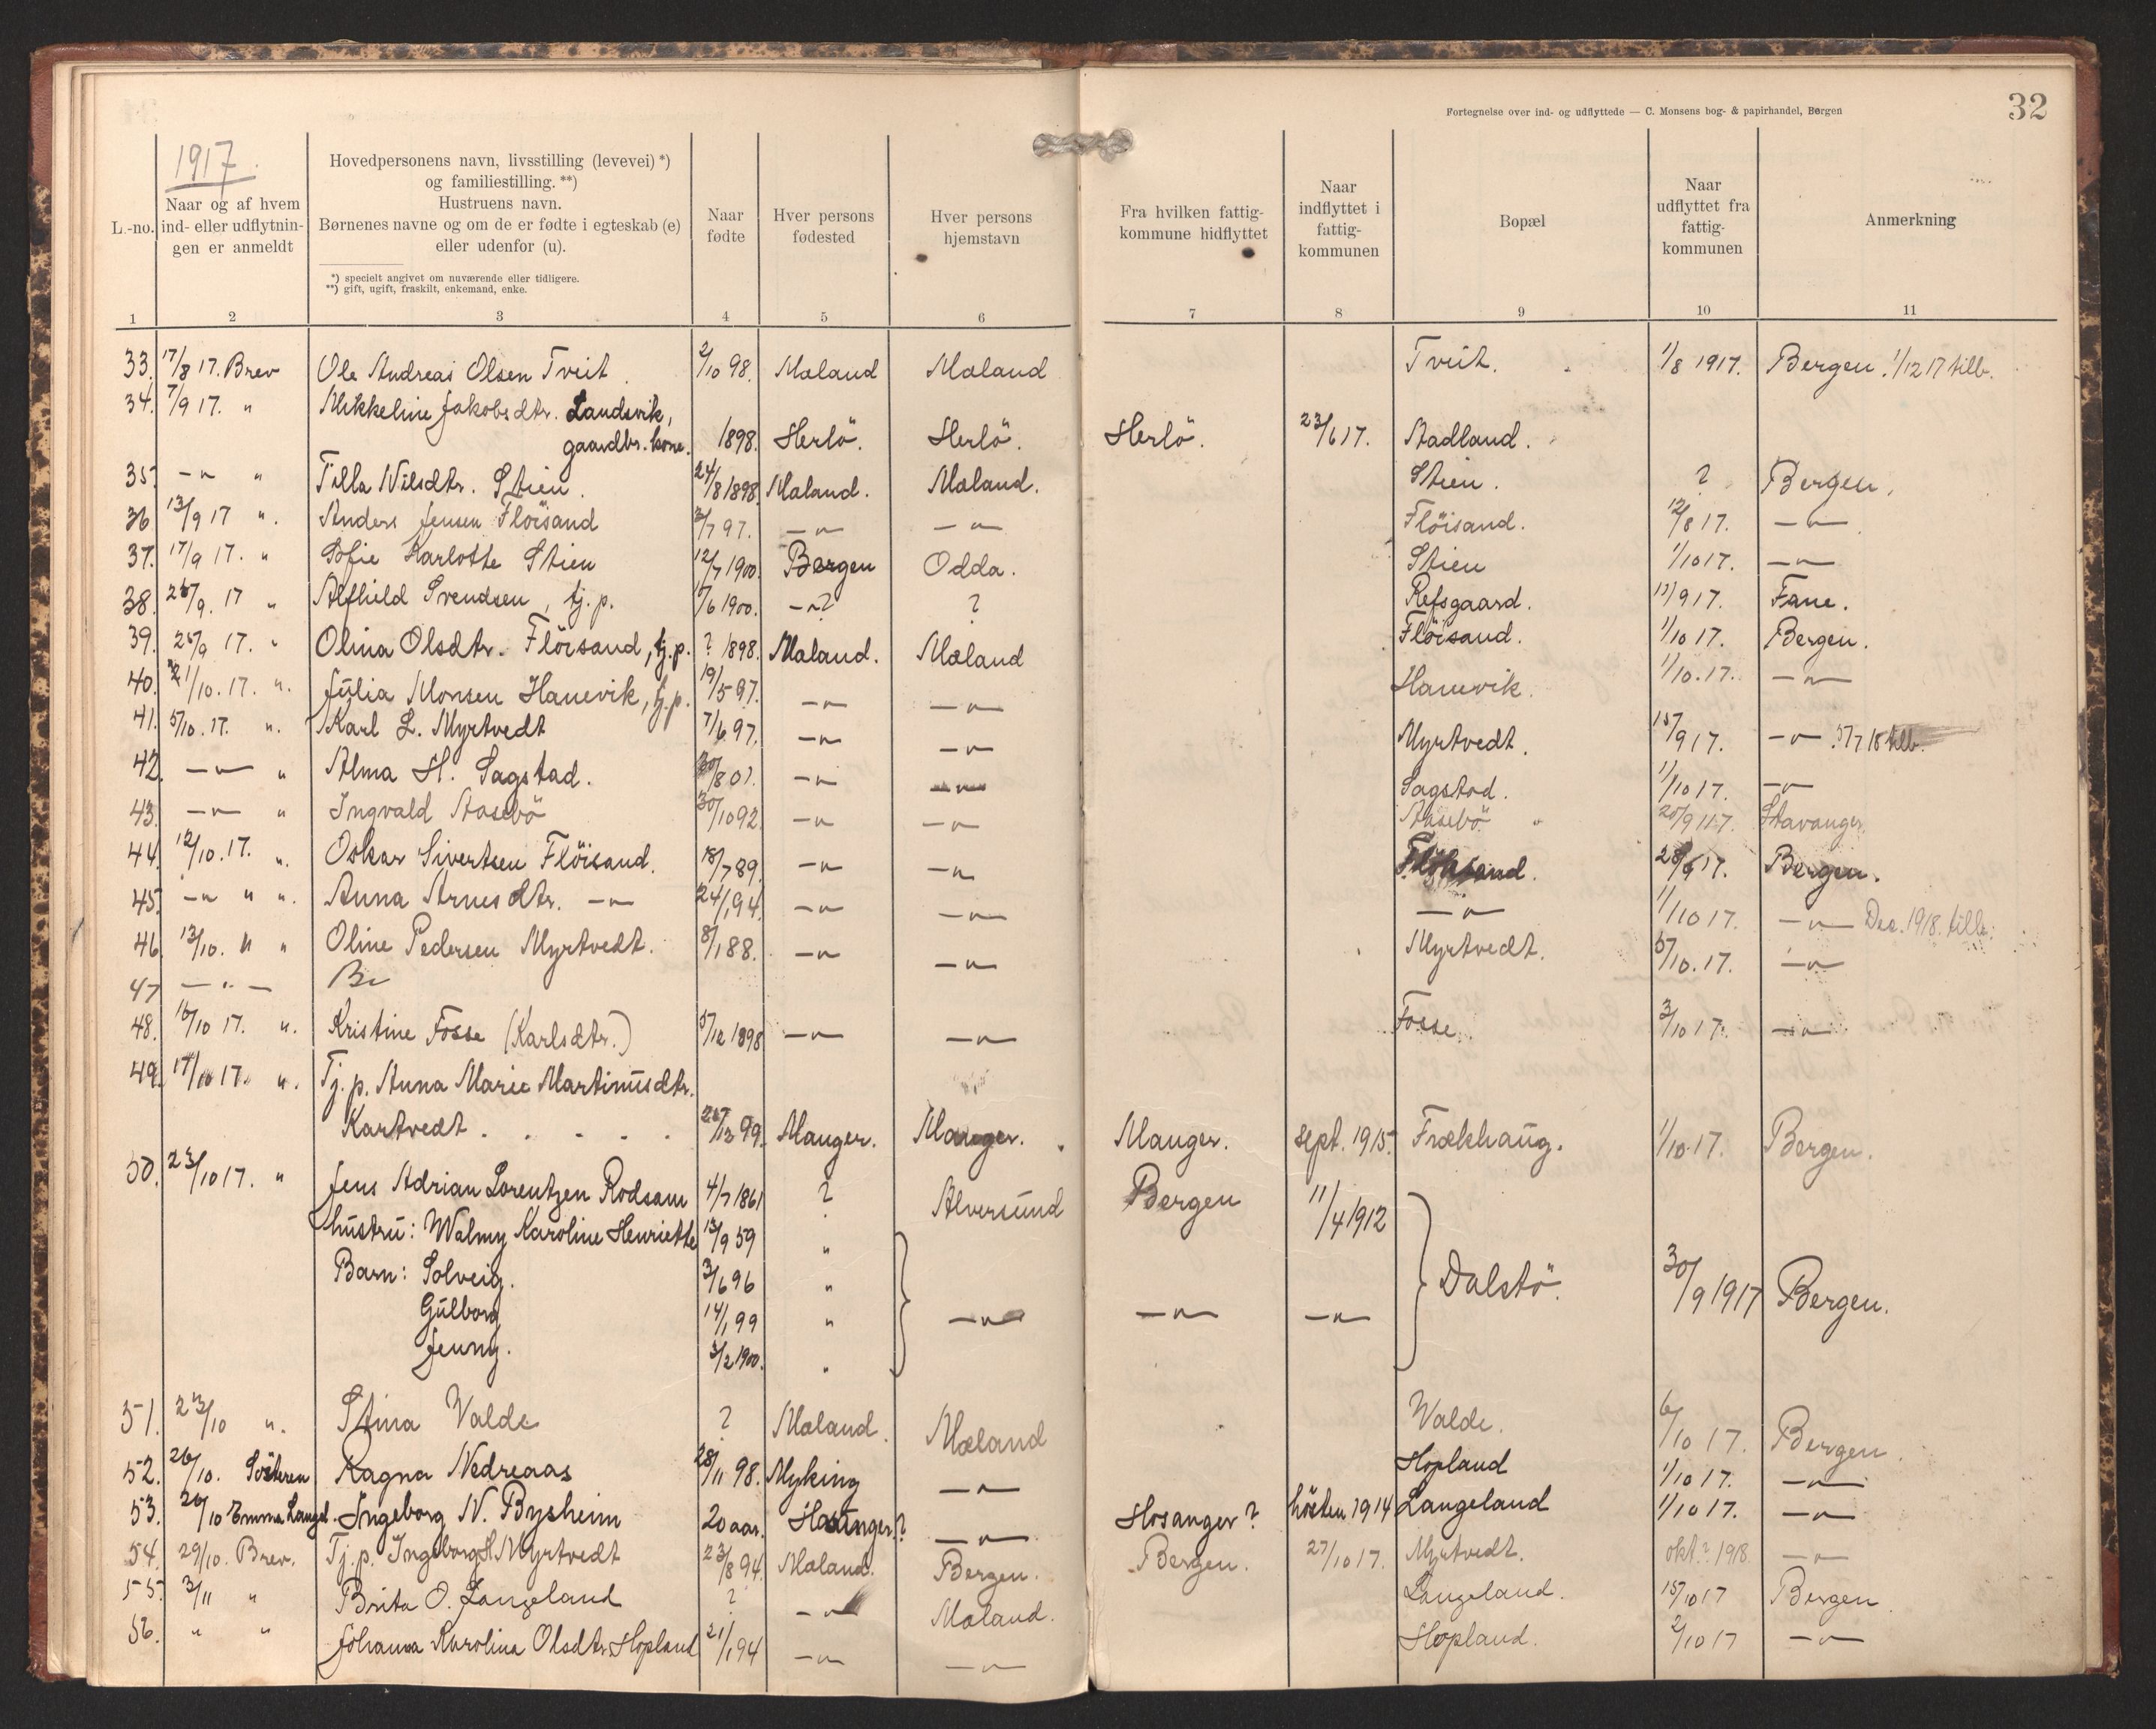 Fortegnelse over ind- og udflyttede — C. Monsens bog- & papirhandel, Bergen
32
1917
L.-no. Naar og af hvem ind- eller udflytningen er anmeldt
Hovedpersonens navn, livsstilling (levevei) *)
og familiestilling. **)
Hustruens navn.
Børnenes navne og om de er fødte i egteskab (e)
eller udenfor (u).
*) specielt angivet om nuværende eller tidligere.
**) gift, ugift, fraskilt, enkemand, enke.
Naar fødte
Hver persons fødested
Hver persons hjemstavn
Fra hvilken fattigkommune hidflyttet
Naar indflyttet i fattigkommunen
Bopæl
Naar udflyttet fra fattigkommunen
Anmerkning
1 2 3 4 5 6 7 8 9 10 11
33. 17/8 17. Brev Ole Andreas Olsen Tveit. 2/10 98. Mæland Mæland Tveit. 1/8 1917. Bergen. 1/12 17 tilb.
34. 7/9 17. " Mikkeline Jakobsdtr. Landsvik,
gaardbr. kone. 1898. Herlö. Herlö. Herlö. 23/6 17. Stadland.
35. -"- " Tilla Nilsdtr. Stien. 24/8 1898 Mæland. Mæland. Stien. ? Bergen.
36 13/9 17 ". Anders Jensen Flöisand 3/7 97. -"- -"- Flöisand. 12/8 17. -"-
37. 17/9 17. " Sofie Karlotte Stien 12/7 1900. Bergen Odda. Stien 1/10 17. -"-
38. 25/9. 17 " Alfhild Svendsen, tj.p. /6 1900. -"-? ? Refsgaard. /9 17. Fane.
39. 25/9 17. " Olina Olsdtr. Flöisand, tj.p. ? 1898. Mæland. Mæland Flöisand. 1/10 17. Bergen.
40. /10. 17. ". Julia Monsen Hanevik, tj.p. 19/5 97. -"- -"- Hanevik. 1/10. 17. -"-
41. 5/10. 17. ". Karl L. Myrtvedt 7/6 97. -"- -"- Myrtvedt. 15/9 17. -"- 5/7 18 tilb.
42. -"- " Alma H. Sagstad. 30/8 01. -"- -"- Sagstad. 1/10 17. -"-
43. -"- " Ingvald Aasebö 30/10 92. -"- -"- Aasebö 20/9 17. Stavanger.
44. 12/10. 17. ". Oskar Sivertsen Flöisand. 18/7 89. -"- -"- Flöisand. 28/9 17. Bergen.
45. -"- " ". Anna Arnesdtr. -"- 24/1 94. -"- -"- -"- 1/10 17. -"- Des. 1918. tilb.
46 13/10. " " Oline Pedersen Myrtvedt. 8/1 88. -"- -"- Myrtvedt. 5/10. 17. -"-
47 -"- Br
48. 16/10 17. ". Kristine Fosse (Karlsdtr.) 5/12 1898 -"- -"- Fosse. 3/10 17. -"-
49. 17/10 17. ". Tj.p. Anna Marie Martinusdtr.
Kartvedt . . . . . 25/12 99. Manger. Manger. Manger. sept. 1915. Frækhaug. 1/10. 17. Bergen.
50. 23/10 17. " Jens Adrian Lorentzen Rødsam 4/7 1861 ? Alversund Bergen 11/4 1912
hustru: Walmy Karoline Henriette 13/9 59 "
Barn: Solveig. 3/6 96 "
Gulborg 14/1 99 " -"- -"- -"- Dalstö. 30/9 1917 Bergen.
Jenny. 3/2 1900. "
51. 23/10 ". Stina Valde ? Mæland. Mæland Valde. 6/10 17. Bergen.
52. 26/10. Söstren Ragna Nedreaas 28/11 98. Myking -"- Hopland 1/10 17. -"-
53. 26/10 Emma Langel. Ingeborg N. Bysheim 20 aar. Hosanger.? -"- Hosanger? hösten 1914 Langeland 1/10 17. -"-
54. 29/10. Brev. Tj.p. Ingeborg H. Myrtvedt 23/8 94. Mæland. Bergen. Bergen. 27/10 17. Myrtvedt. okt.? 1918. -"-
55. 3/11 " Brita O. Langeland ? -"- Mæland. Langeland. 15/10 17 Bergen.
56. " " Johanna Karolina Olsdtr. Hopland 21/1 94 -"- -"- Hopland. 2/10 17 -"-